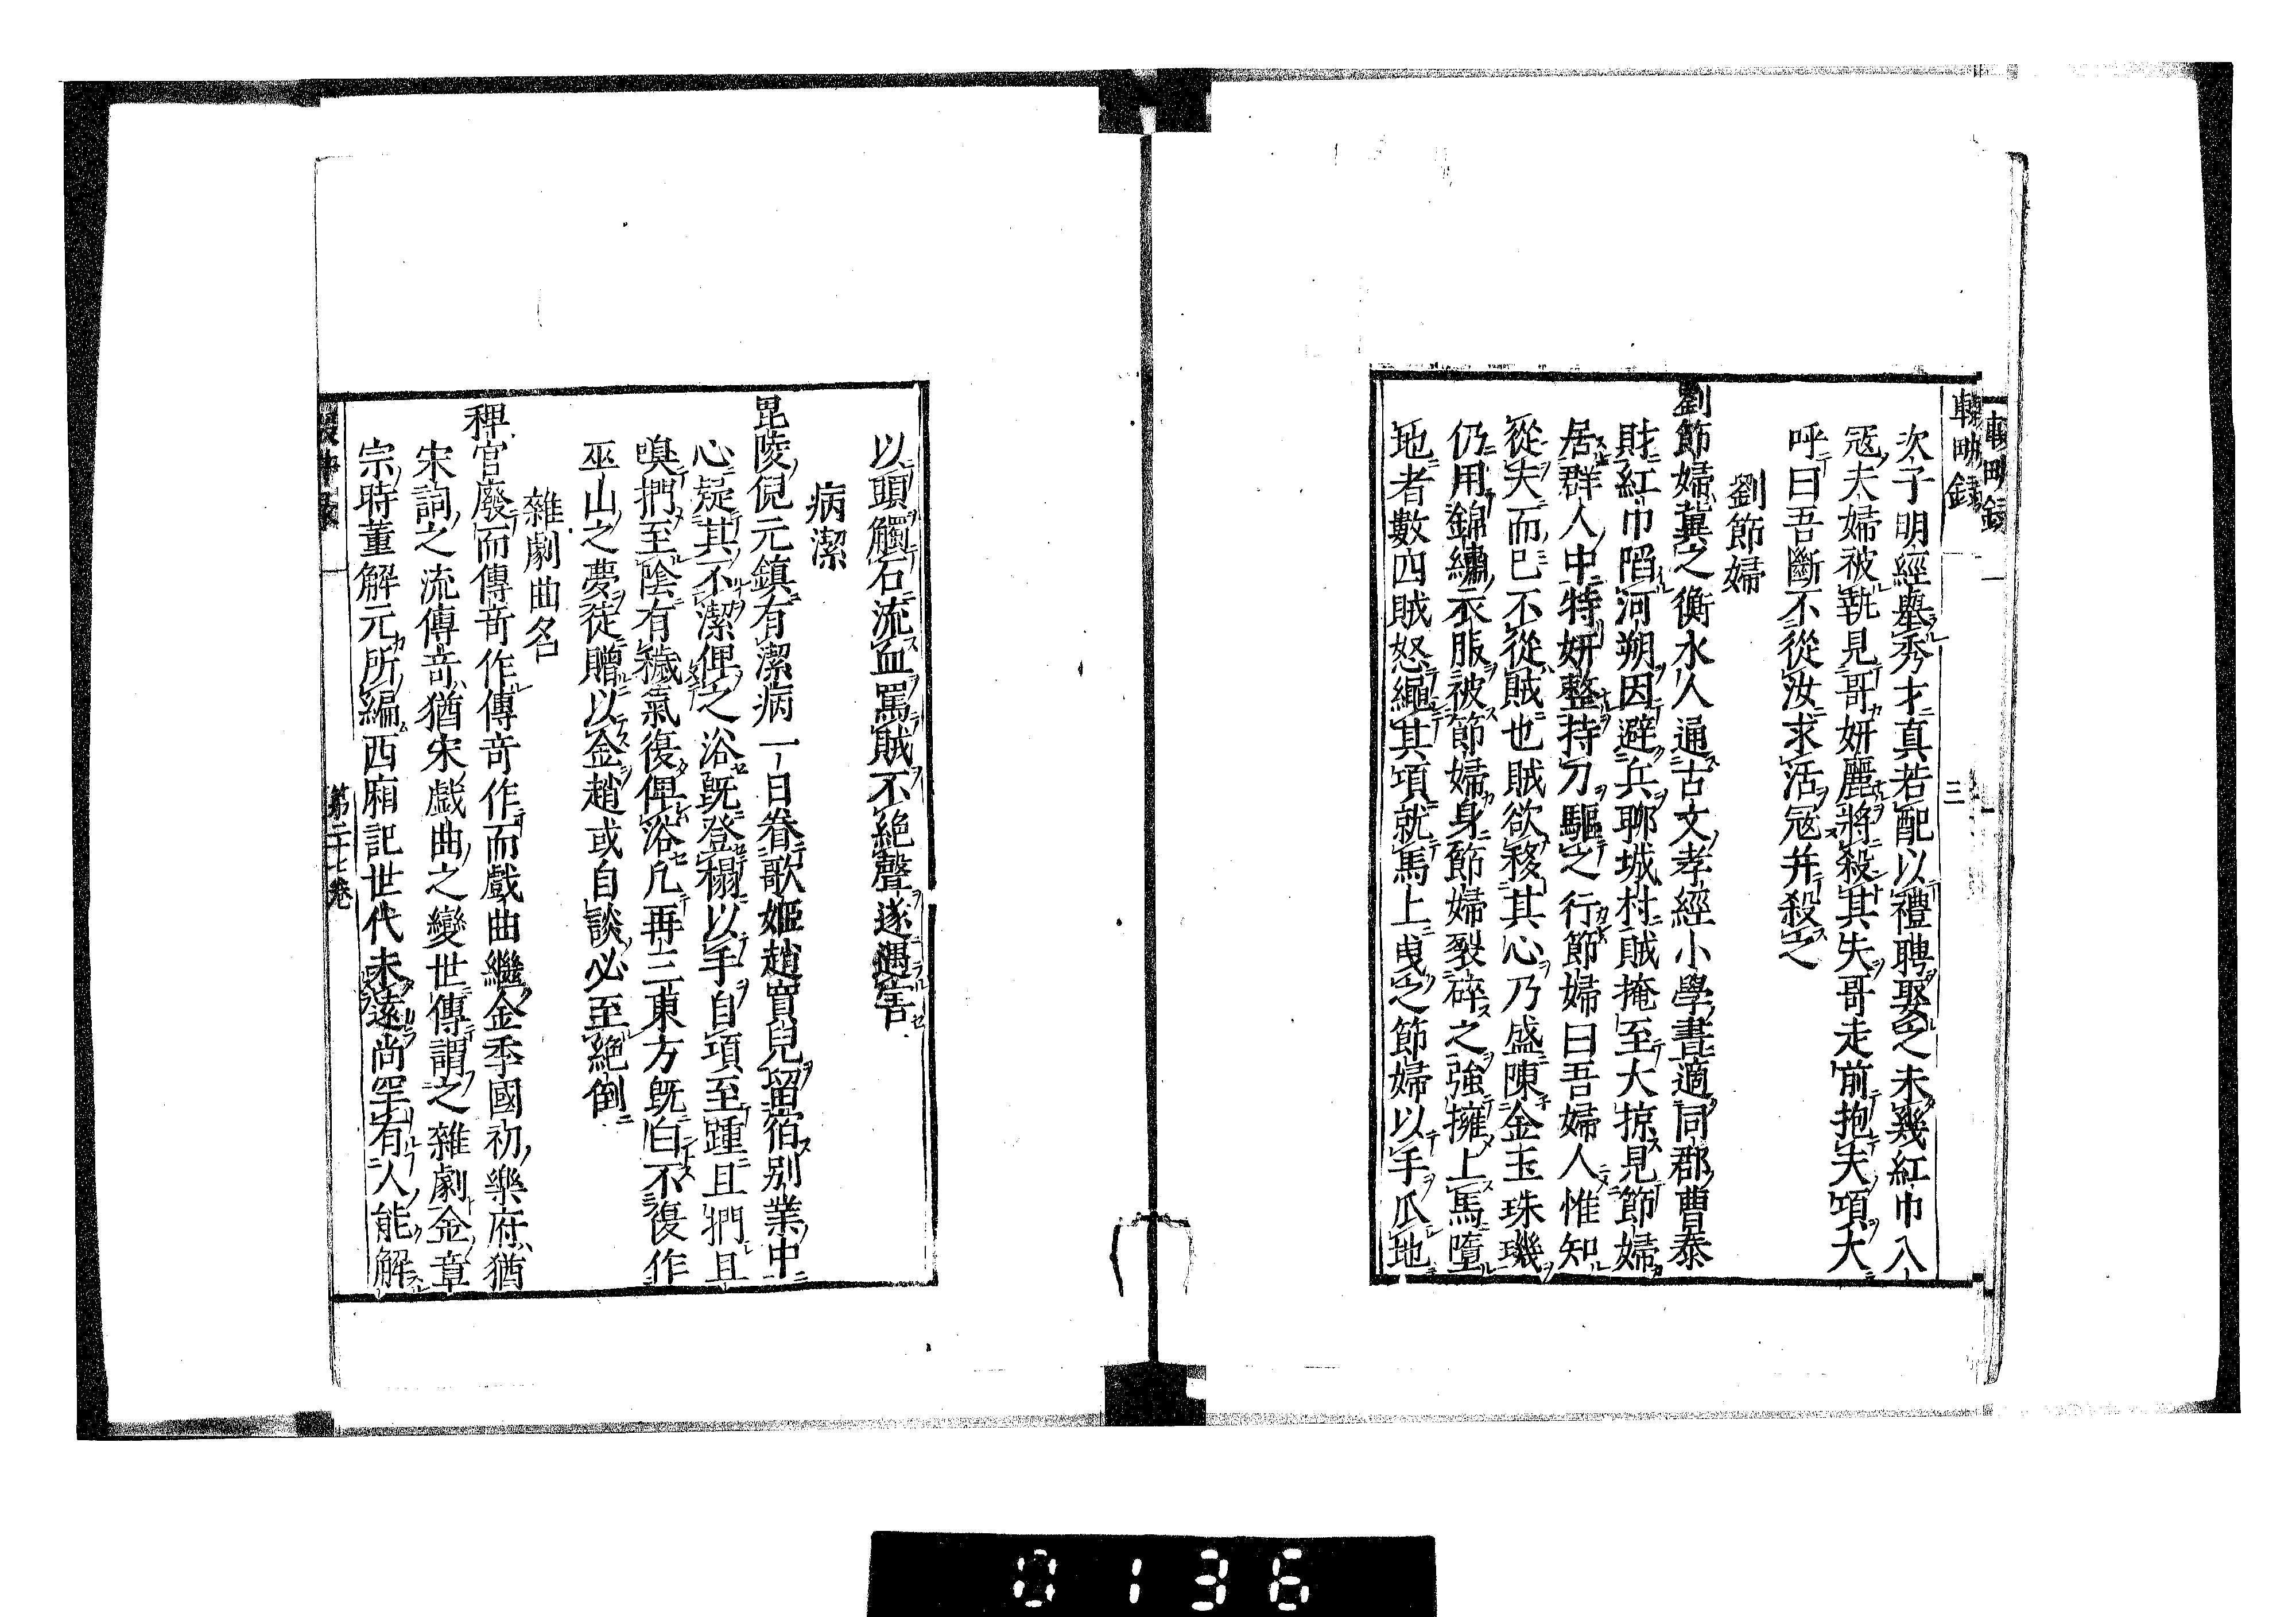 輟畊録
三
次子明經擧秀才真若配以禮聘娶之未幾紅巾入
冦夫婦被執見哥妍麗將殺其夫哥走前抱夫項大
呼曰吾斷不從汝求活冦并殺之
劉節婦
劉節婦冀之衡水人通古文孝經小學書適同郡曹泰
財紅巾陷河朔因避兵聊城村賊掩至大掠見節婦
居群人中特妍整持刀驅之行節婦曰吾婦人惟知
從夫而已不從賊也賊欲移其心乃盛陳金玉珠璣
仍用錦繡衣服被節婦身節婦裂碎之強擁上馬墮
地者數四賊怒繩其項就馬上曳之節婦以手爪地
以頭觸石流血罵賊不絶聲遂遇害
病潔
毘陵倪元鎮有潔病一日眷歌姬趙買兒留宿別業中
心疑其不潔俾之浴既登榻以手自項至踵且捫且
嗅捫至陰有穢氣復俾浴凡再三東方既白不復作
巫山之夢徒贈以金趙或自談必至絶倒
雜劇曲名
稗官廢而傳竒作傳竒作而戲曲繼金季國初樂府猶
宋詞之流傳竒猶宋戲曲之變世傳謂之雜劇金章
宗時董解元所編西廂記世代未遠尚罕有人能解
第二十七卷
0136